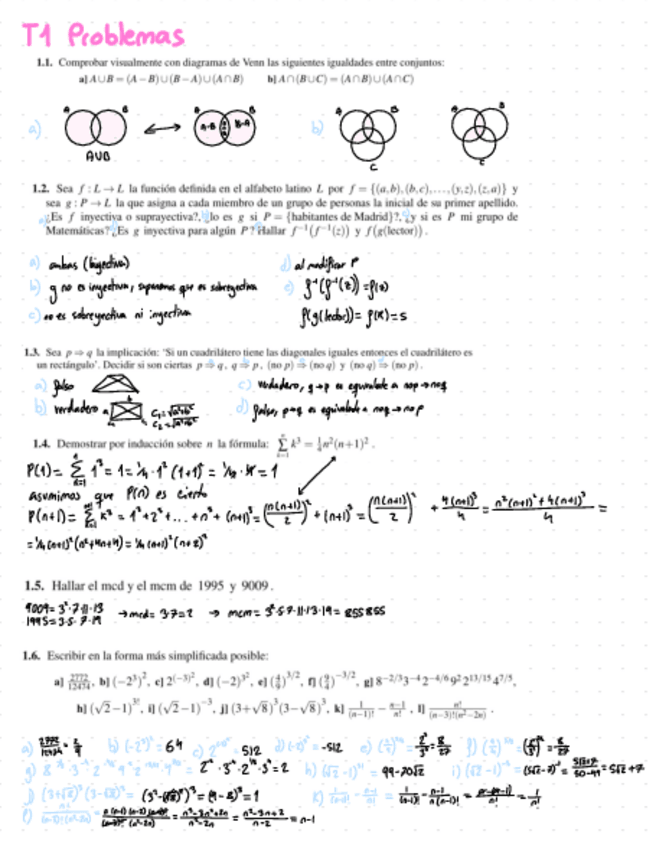 T1 Problemas
1.1. Comprobar visualmente con diagramas de Venn las siguientes igualdades entre conjuntos:
a) A∪B = (A−B)∪(B−A)∪(A∩B) b) A∩(B∪C) = (A∩B)∪(A∩C)
a) A B A-B B-A b) A B A B
A∪B C C
1.2. Sea f : L → L la función definida en el alfabeto latino L por f = {(a,b),(b,c),...,(y,z),(z,a)} y
sea g : P → L la que asigna a cada miembro de un grupo de personas la inicial de su primer apellido.
¿Es f inyectiva o suprayectiva?, ¿lo es g si P = {habitantes de Madrid}?, ¿y si es P mi grupo de
Matemáticas? ¿Es g inyectiva para algún P? Hallar f⁻¹(f⁻¹(z)) y f(g(lector)).
a) ambas (biyectiva) d) al modificar P
b) g no es inyectiva, suponemos que es sobreyectiva e) f⁻¹(f⁻¹(z)) =
c) no es sobreyectiva ni inyectiva f(g(lector)) = = s
1.3. Sea p ⇒ q la implicación: 'Si un cuadrilátero tiene las diagonales iguales entonces el cuadrilátero es
un rectángulo'. Decidir si son ciertas p ⇒ q, q ⇒ p, (no p) ⇒ (no q) y (no q) ⇒ (no p).
a) falso c) verdadero, q→p es equivalente a no p→no q
b) verdadero d) falso, p→q es equivalente a no q→no p
1.4. Demostrar por inducción sobre n la fórmula: ∑ k³ = ¼n²(n+1)².
P(1) = ∑ 1³ = 1 = ¼ · 1² (1+1)² = ¼ · 4 = 1
asumimos que P(n) es cierto
P(n+1) = ∑ k³ = 1³+2³+...+n³+(n+1)³ = (n(n+1)/2)² + (n+1)³ = (n(n+1)/2)² + 4(n+1)³/4 = n²(n+1)²+4(n+1)³/4 =
= ¼(n+1)²(n²+4n+4) = ¼(n+1)²(n+2)²
1.5. Hallar el mcd y el mcm de 1995 y 9009.
9009 = 3²·7·11·13 → mcd = → mcm = 3²·5·7·11·13·19 = 855 855
1995 = 3·5·7·19
1.6. Escribir en la forma más simplificada posible:
a) 2772/12474, b) (−2³)², c) 2^(−3)², d) (−2)^3², e) (4/9)^3/2, f) (9/4)^−3/2, g) 8^−2/3 3^−4 2^−4/6 9² 2^13/15 4^7/5,
h) (√2−1)^3!, i) (√2−1)^−3, j) (3+√8)³(3−√8)³, k) 1/(n−1)! − (n−1)/n!, l) n!/(n−3)!(n²−2n).
a) = 2/9 b) (-2³)² = 64 c) = 512 d) = -512 e) = 8/27 f) = 8/27
g) = 2 h) (√2-1)³! = 99-70√2 i) (√2-1)⁻³ = = 5√2+7
j) (3+√8)³(3-√8)³ = (3²-(√8)²)³ = (9-8)³ = 1 k) = 1/n!
l) = n³-3n²+2n/n²-2n = n²-3n+2/n-2 = n-1